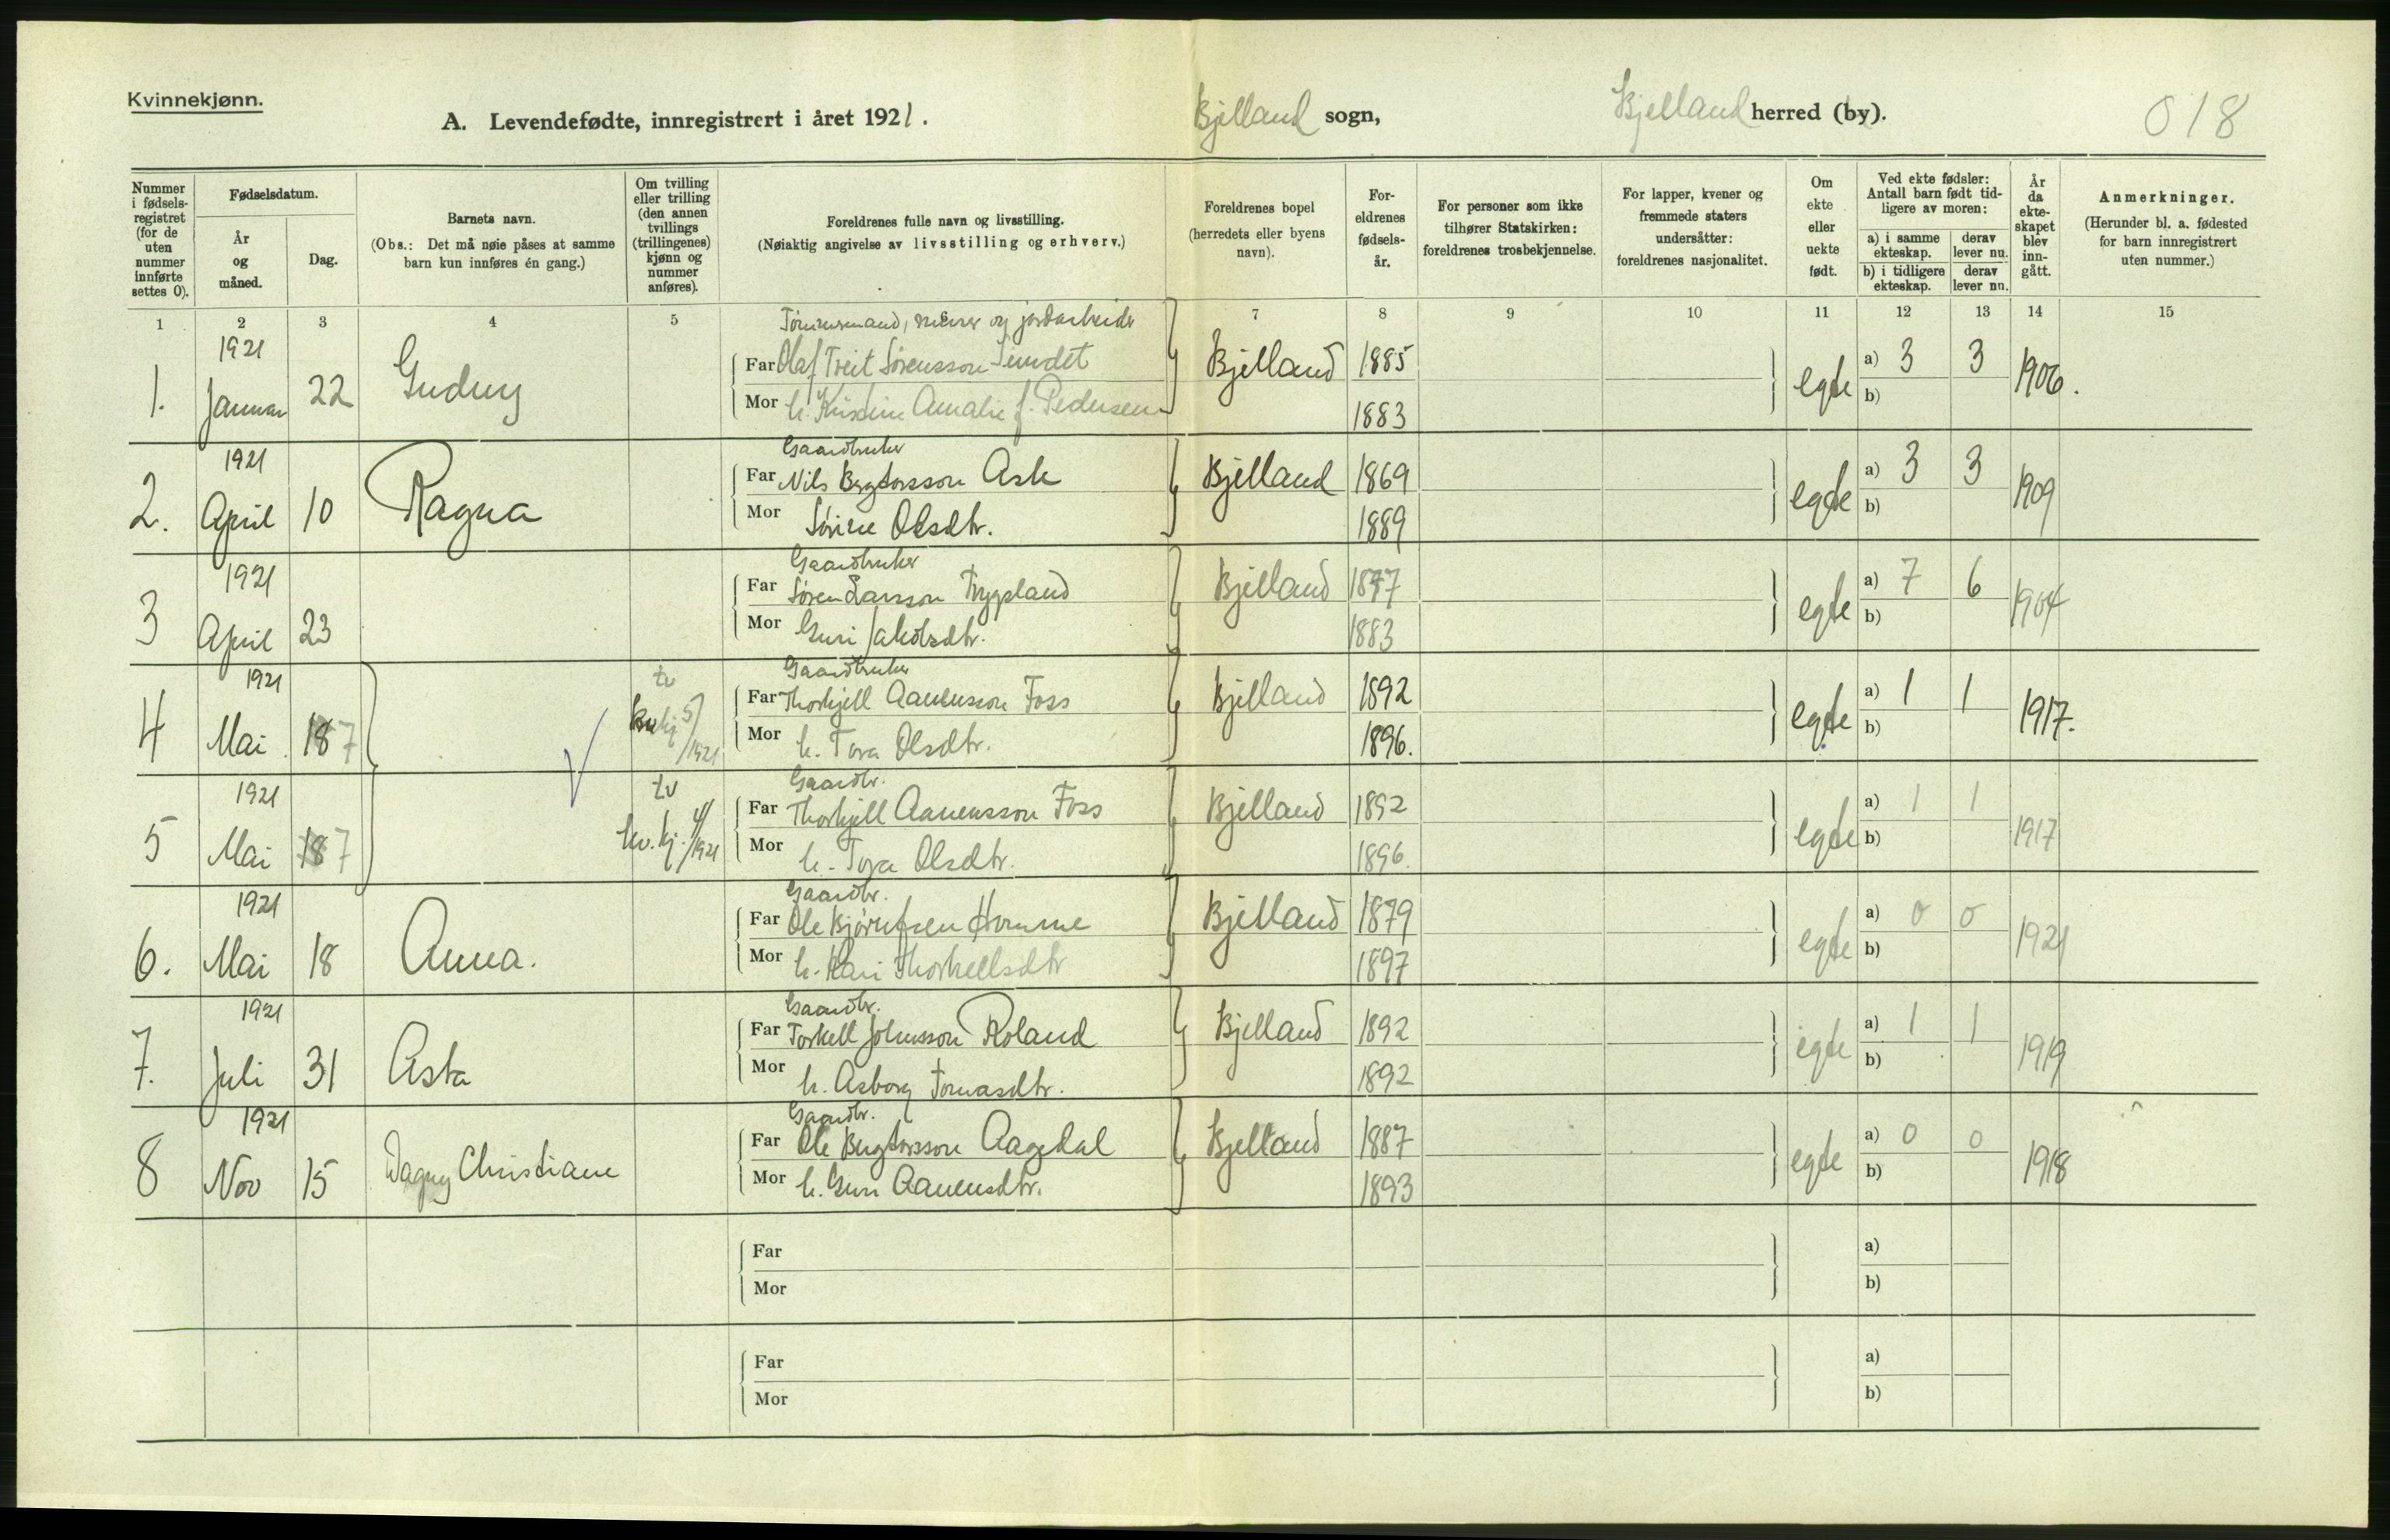 Kvinnekjønn.
A. Levendefødte, innregistrert i året 1921. Bjelland sogn, Bjelland herred (by). 018
Nummer i fødsels-registret (for de uten nummer innførte settes 0).
Fødselsdatum.
År og måned.
Dag.
Barnets navn.
(Obs.: Det må nøie påses at samme barn kun innføres én gang.)
Om tvilling eller trilling (den annen tvillings (trillingenes) kjønn og nummer anføres).
Foreldrenes fulle navn og livsstilling.
(Nøiaktig angivelse av livsstilling og erhverv.)
Foreldrenes bopel (herredets eller byens navn).
For-eldrenes fødsels-år.
For personer som ikke tilhører Statskirken: foreldrenes trosbekjennelse.
For lapper, kvener og fremmede staters undersåtter: foreldrenes nasjonalitet.
Om ekte eller uekte født.
Ved ekte fødsler: Antall barn født tid-ligere av moren:
a) i samme ekteskap. derav lever nu.
b) i tidligere ekteskap. derav lever nu.
År da ekte-skapet blev inn-gått.
Anmerkninger.
(Herunder bl. a. fødested for barn innregistrert uten nummer.)
1 2 3 4 5 7 8 9 10 11 12 13 14 15
Tømmermand, murer og jordarbeider
1. 1921 Januar 22 Gudny
Far Olaf Treit Sørensson Sundet Bjelland 1885 egte a) 3 3 1906.
Mor h. Kristine Amalie f. Pedersen 1883 b)
Gaardbruker
2. 1921 April 10 Ragna
Far Nils Bergtorsson Ask Bjelland 1869 egte a) 3 3 1909
Mor Sørine Olsdtr. 1889 b)
Gaardbruker
3 1921 April 23
Far Søren Larsson Trygsland Bjelland 1877 egte a) 7 6 1904
Mor Guri Jakobsdtr. 1883 b)
Gaardbruker
4 1921 Mai 187 tv kv kj 5/1921
Far Thorkjell Aanensson Foss Bjelland 1892 egte a) 1 1 1917.
Mor h. Tora Olsdtr. 1896. b)
Gaardbr.
5 1921 Mai 187 tv kv. kj. 4/1921
Far Thorkjell Aanensson Foss Bjelland 1892 egte a) 1 1 1917
Mor h. Tora Olsdtr. 1896. b)
Gaardbr.
6. 1921 Mai 18 Anna.
Far Ole Bjørnsen Homme Bjelland 1879 egte a) 0 0 1921
Mor h. Kari Thorkellsdtr 1897 b)
Gaardbr.
7. 1921 Juli 31 Asta
Far Torkell Johnsson Roland Bjelland 1892 egte a) 1 1 1919
Mor h. Asborg Tomasdtr. 1892 b)
Gaardbr.
8 1921 Nov 15 Dagny Christiane
Far Ole Bergtorsson Aagedal Bjelland 1887 egte a) 0 0 1918
Mor h. Guri Aanensdtr. 1893 b)
Far a)
Mor b)
Far a)
Mor b)